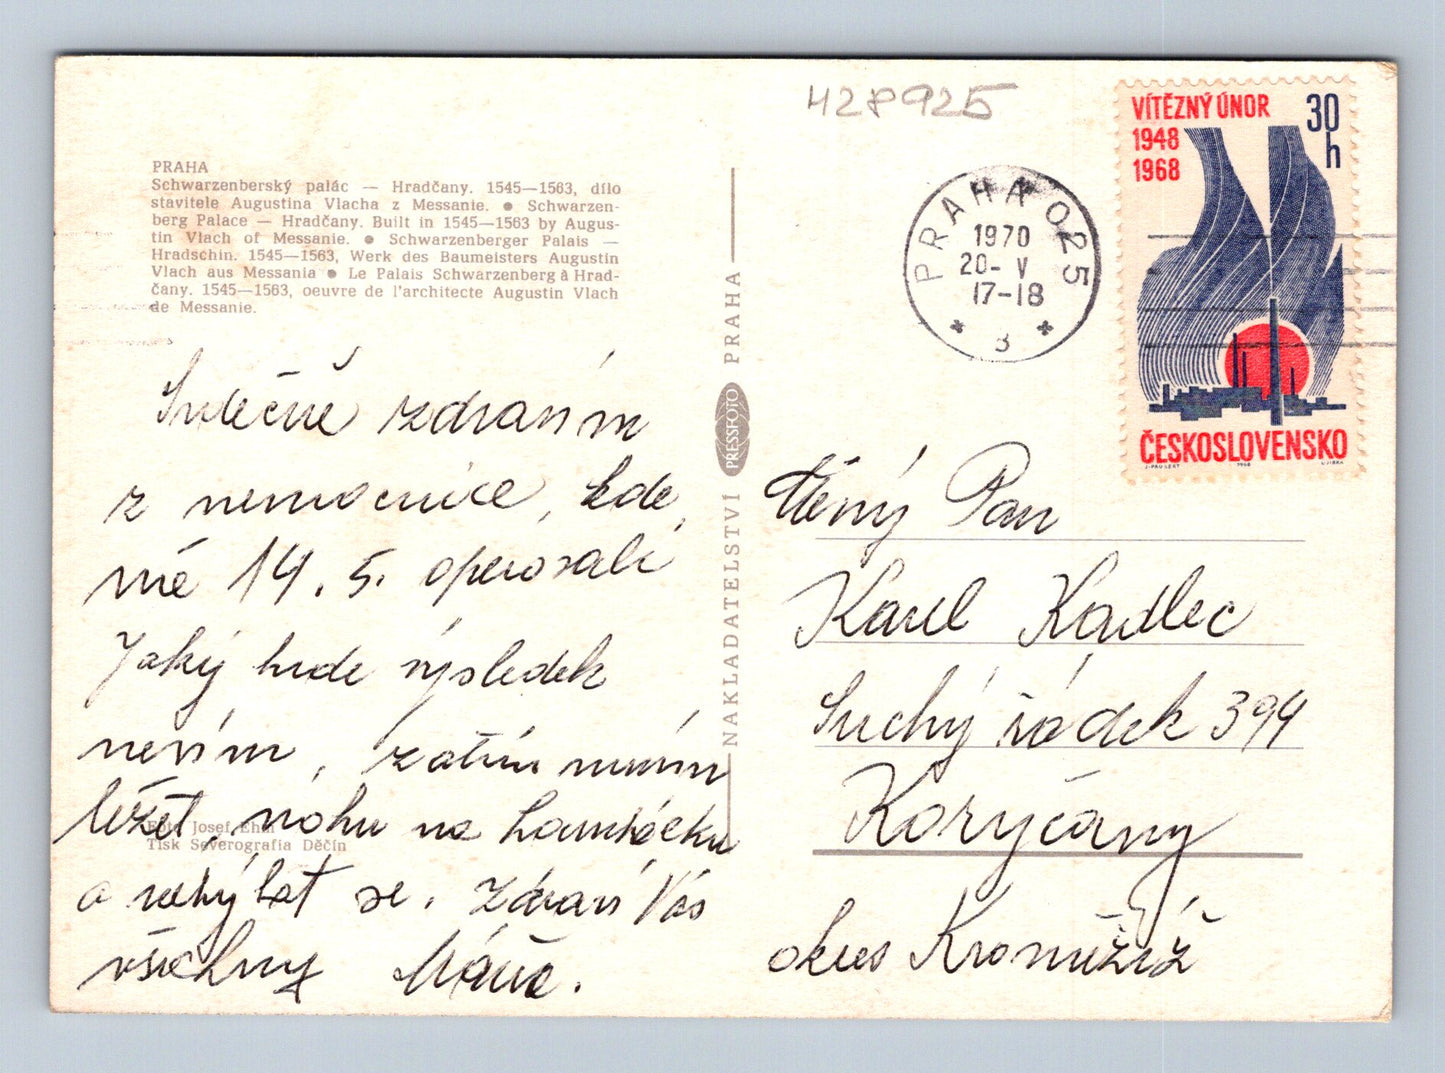 428925
VÍTĚZNÝ ÚNOR
1948
1968
30
h
ČESKOSLOVENSKO
1968
PRAHA 025
1970
20- V
17-18
* 3 *
PRAHA
Schwarzenberský palác — Hradčany. 1545—1563, dílo
stavitele Augustina Vlacha z Messanie. ● Schwarzen-
berg Palace — Hradčany. Built in 1545—1563 by Augus-
tin Vlach of Messanie. ● Schwarzenberger Palais —
Hradschin. 1545—1563, Werk des Baumeisters Augustin
Vlach aus Messania ● Le Palais Schwarzenberg à Hrad-
čany. 1545—1563, oeuvre de l'architecte Augustin Vlach
de Messanie.
Srdečně zdravím
z nemocnice, kde
mě 14. 5. operovali
Jaký bude výsledek
nevím, zatím musím
ležet, nohu na
a nehýbat se. Zdraví Vás
všechny Máňa.
Foto Josef Ehm
Tisk Severografia Děčín
NAKLADATELSTVÍ PRESSFOTO PRAHA
Ctěný Pan
Karel Kadlec
Suchý řádek 394
Koryčany
okres Kroměříž